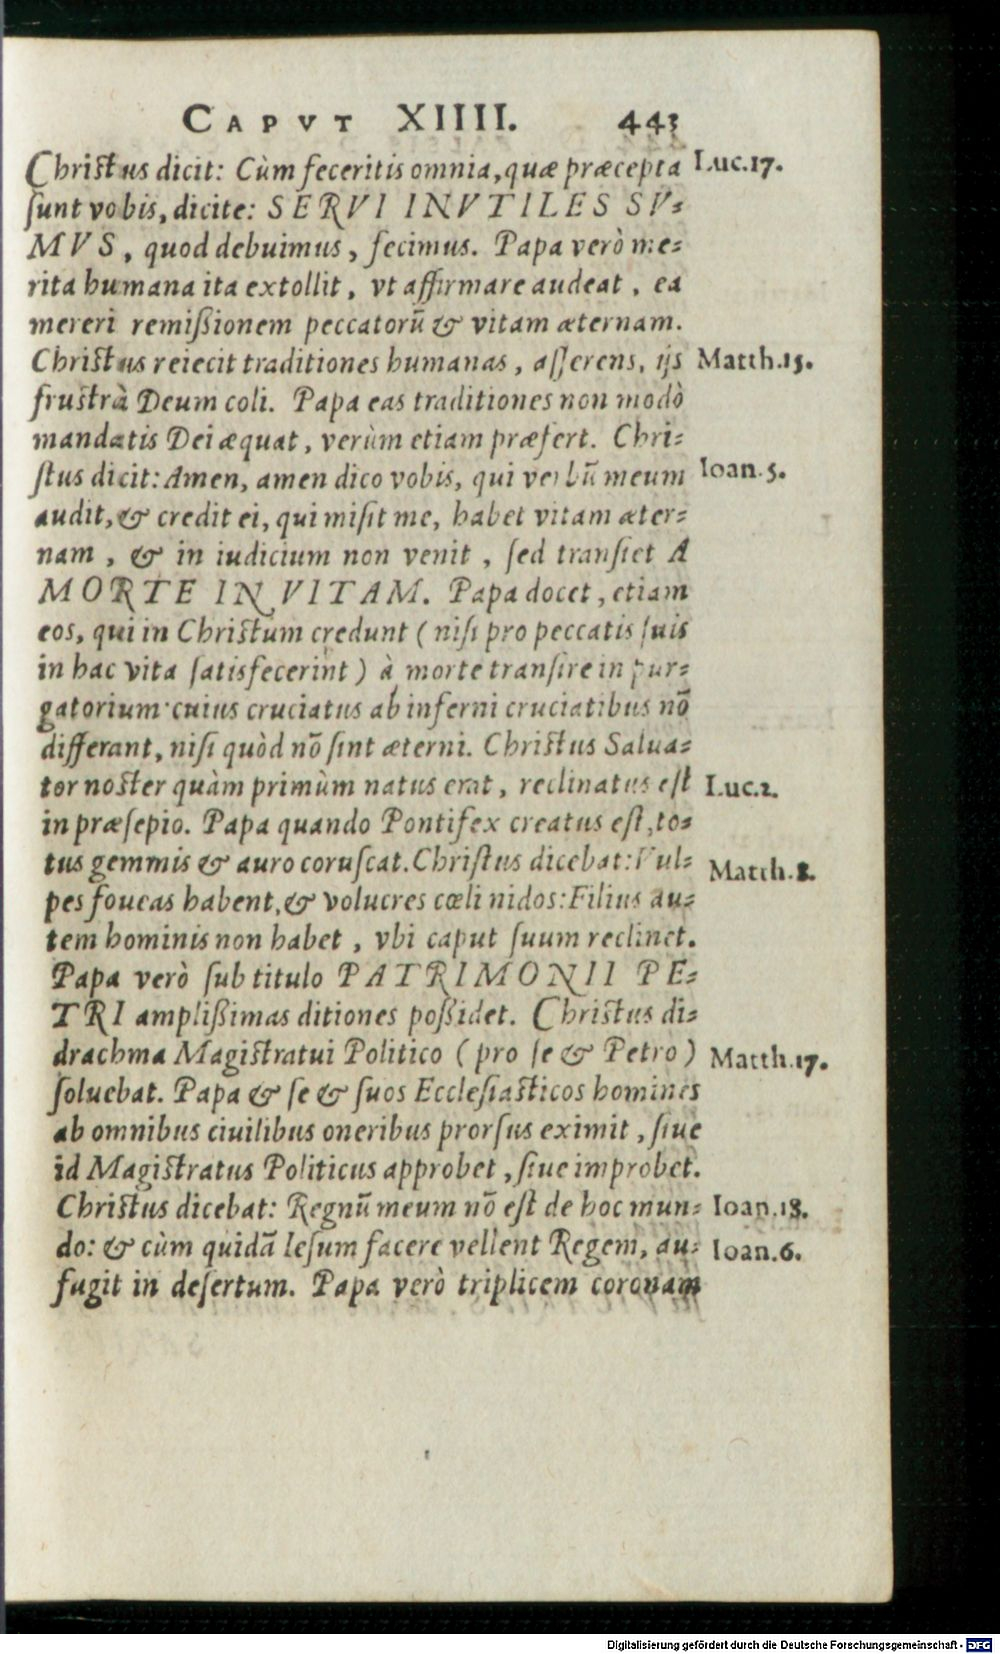 CAPVT XIIII. 443
Christus dicit: Cùm feceritis omnia, quæ præcepta Luc.17.
sunt vobis, dicite: SERVI INVTILES SV-
MVS, quod debuimus, fecimus. Papa verò me-
rita humana ita extollit, vt affirmare audeat, ea
mereri remißionem peccatorū & vitam æternam.
Christus reiecit traditiones humanas, asserens, ijs Matth.15.
frustrà Deum coli. Papa eas traditiones non modò
mandatis Dei æquat, verùm etiam præfert. Chri-
stus dicit: Amen, amen dico vobis, qui verbū meum Ioan.5.
audit, & credit ei, qui misit me, habet vitam æter-
nam, & in iudicium non venit, sed transiet A
MORTE IN VITAM. Papa docet, etiam
eos, qui in Christum credunt (nisi pro peccatis suis
in hac vita satisfecerint) à morte transire in pur-
gatorium: cuius cruciatus ab inferni cruciatibus nō
differant, nisi quòd nō sint æterni. Christus Salua-
tor noster quàm primùm natus erat, reclinatus est Luc.2.
in præsepio. Papa quando Pontifex creatus est, to-
tus gemmis & auro coruscat. Christus dicebat: Vul- Matth.8.
pes foueas habent, & volucres cœli nidos: Filius au-
tem hominis non habet, vbi caput suum reclinet.
Papa verò sub titulo PATRIMONII PE-
TRI amplißimas ditiones poßidet. Christus di-
drachma Magistratui Politico (pro se & Petro) Matth.17.
soluebat. Papa & se & suos Ecclesiasticos homines
ab omnibus ciuilibus oneribus prorsus eximit, siue
id Magistratus Politicus approbet, siue improbet.
Christus dicebat: Regnū meum nō est de hoc mun- Ioan.18.
do: & cùm quidā Iesum facere vellent Regem, au- Ioan.6.
fugit in desertum. Papa verò triplicem coronam
Digitalisierung gefördert durch die Deutsche Forschungsgemeinschaft - DFG